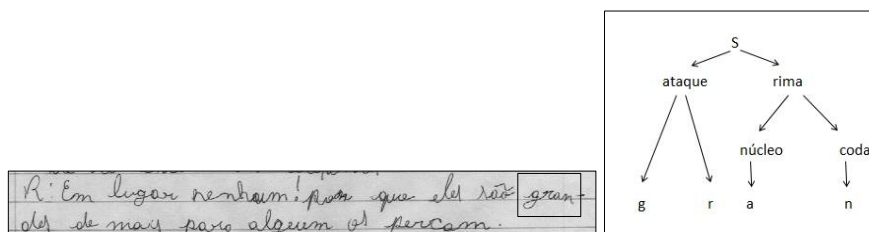 R: Em lugar nenhum! por que eles são gran-
des de mais para alguem os percam.
S
ataque rima
núcleo coda
g r a n